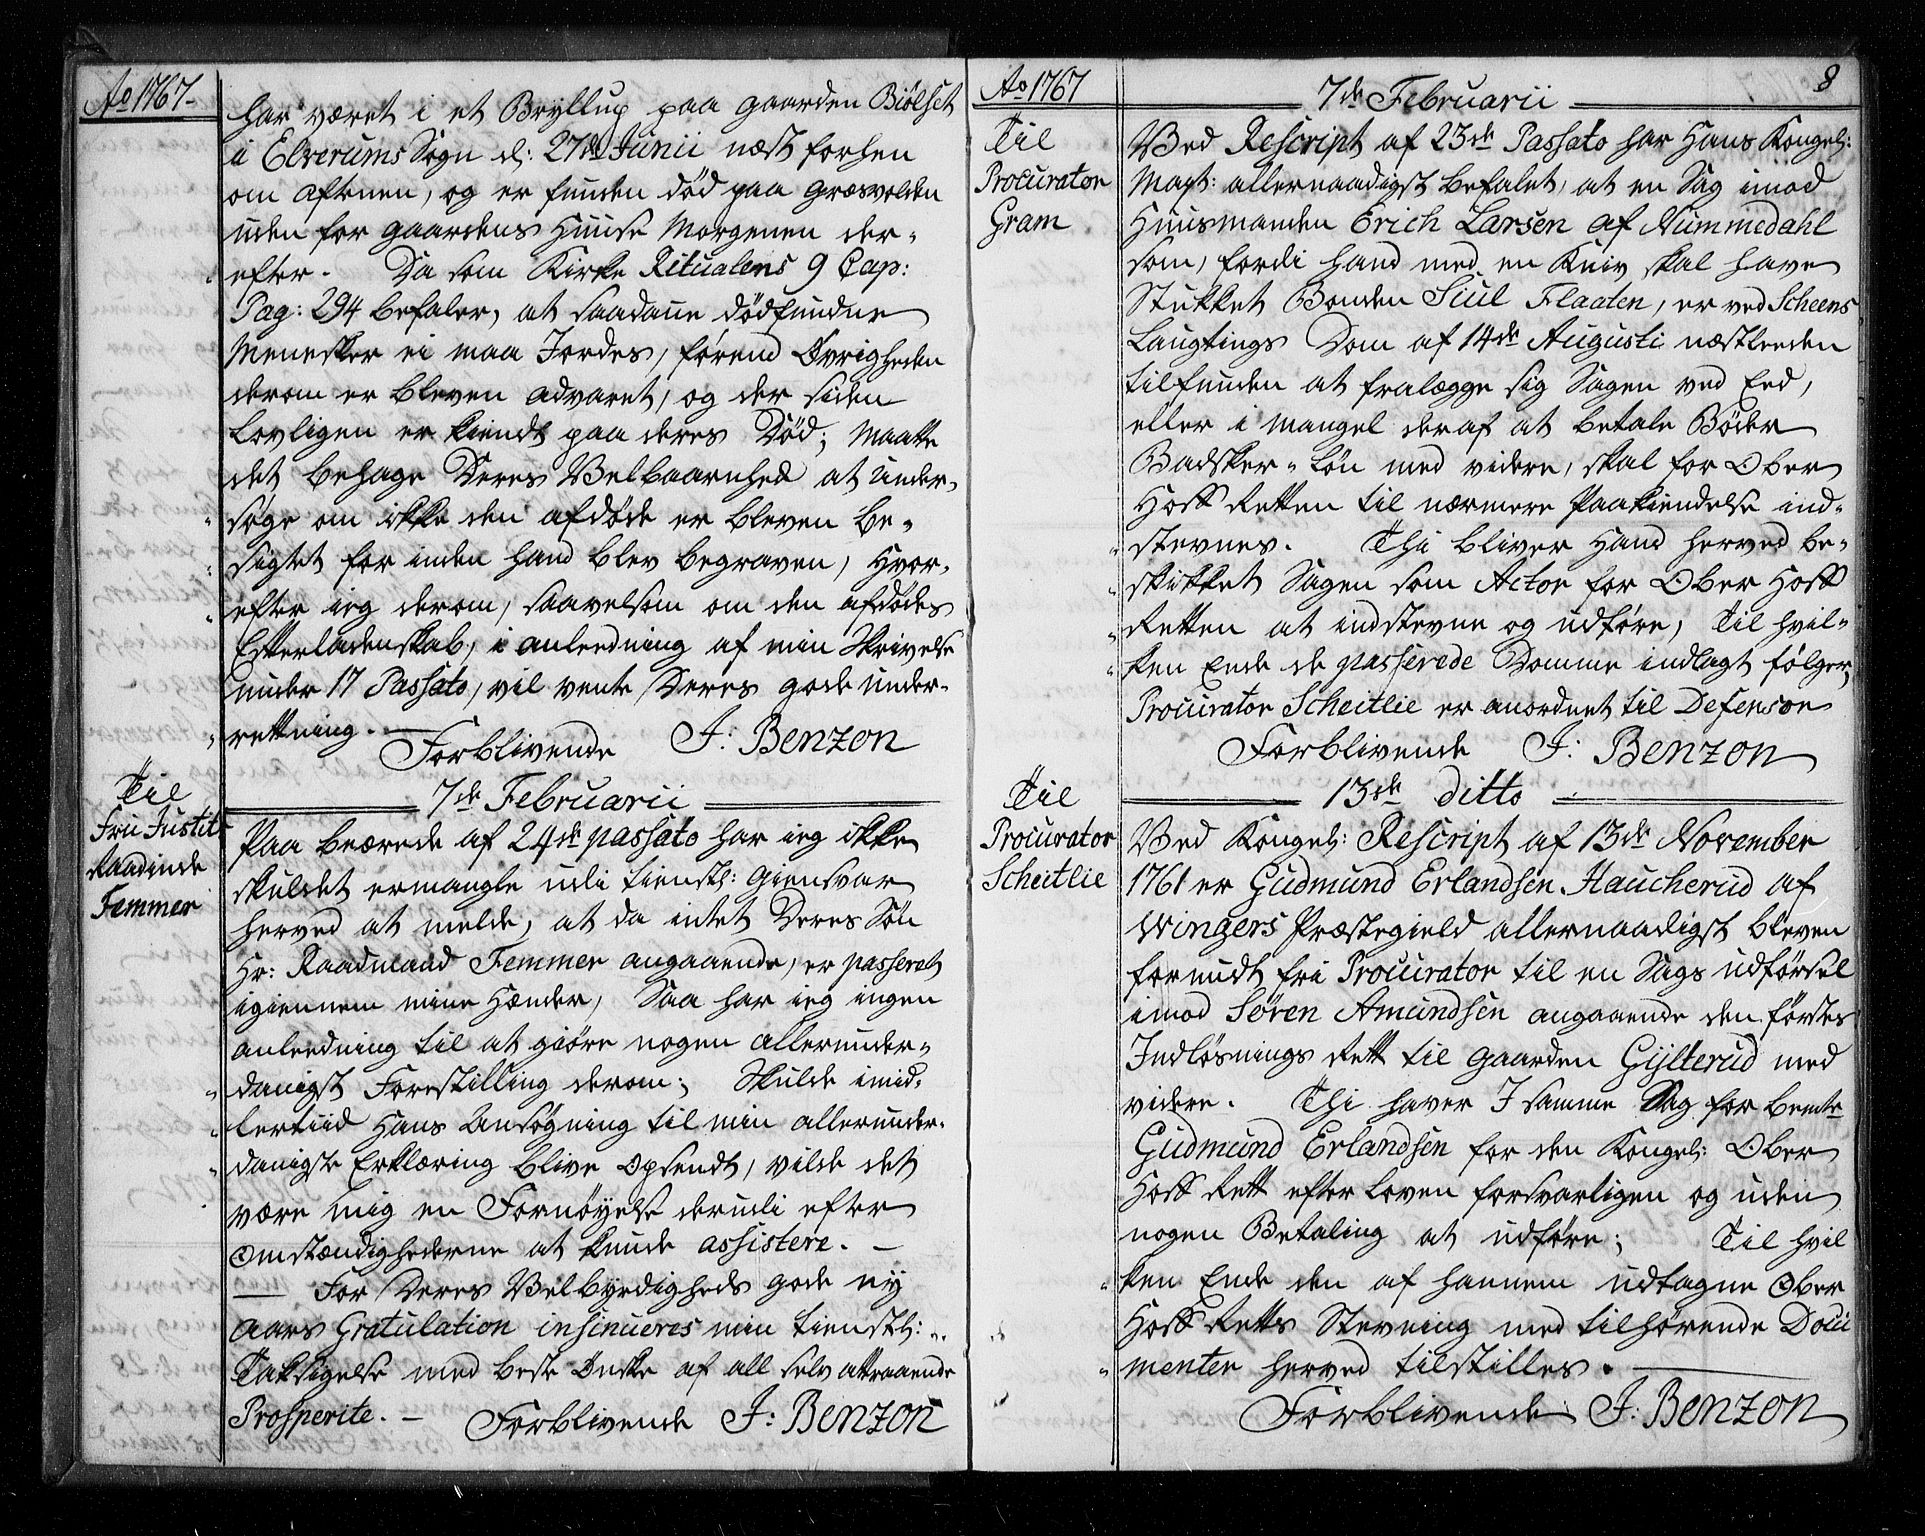 Ao 1767.
har været i et Bryllup paa gaarden Biölset
i Elverums Sogn d: 27de Junii næst forhen
om Aftenen, og er funden død paa græsvolden
uden for gaardens Huuse Morgenen der-
efter. Da som Kirke Ritualens 9 Cap:
Pag: 294 befaler, at saadane dødfundne
Menesker ei maa Jordes, førend Øvrigheden
derom er bleven advaret, og der siden
Lovligen er kiendt paa deres Død; Maatte
det behage Deres Velbaarnhed at under-
søge om ikke den afdøde er bleven be-
sigtet for inden hand blev begraven, Hvor-
efter ieg derom, saavelsom om den afdødes
Efterladenskab, i anleedning af min Skrivelse
under 17 Passato, vil vente Deres gode under-
rettning.
Forblivende J: Benzon
Til
Fru Justit-
Raadinde
Femmer
7de Februarii
Paa beærede af 24de passato har ieg ikke
skuldet ermangle udi tienstl: giensvar
herved at melde, at da intet Deres Søn
Hr: Raadmand Femmer angaaende, er passeret
igiennem mine Hænder, Saa har ieg ingen
anleedning til at giøre nogen allerunder-
danigst Forestilling derom; Skulde imid-
lertiid Hans Ansøgning til min allerunder-
danigste Erklæring blive opsendt, vilde det
være mig en Fornøyelse derudi efter
Omstændighederne at kunde assistere. —
— For Deres Velbyrdigheds gode ny
aars Gratulation insinueres min tienstl:
Taksigelse med beste Ønske af all selv attraaende
Prosperite. — Forblivende J: Benzon
Ao 1767
8
7de Februarii
Til
Procurator
Gram
Ved Rescript af 23de Passato har Hans Kongel:
Mayt: allernaadigst befalet, at en Sag imod
Huusmanden Erich Larsen af Nummedahl
som, fordi hand med en Kniv skal have
Stukket Bonden Siul Flaaten, er ved Scheens
Laugtings Dom af 14de Augusti næstleeden
tilfunden at fralægge sig Sagen ved Eed,
eller i mangel deraf at betale Bøder
Badsker-Løn med videre, skal for Ober
Hoff Retten til nærmere Paakiendelse ind-
stevnes. Thi bliver Hand herved be-
skikket Sagen som Actor for Ober Hoff
Retten at indstevne og udføre, Til hvil-
ken Ende de passerede Domme indlagt følger,
Procurator Scheitlie er anordnet til Defensor
Forblivende J: Benzon
13de ditto
Til
Procurator
Scheitlie
Ved Kongel: Rescript af 13de November
1761 er Gudmund Erlandsen Haucherud af
Wingers Præstegield allernaadigst bleven
forundt fri Procurator til en Sags udførsel
imod Søren Amundsen angaaende den førstes
Indløsnings Rett til gaarden Gylterud med
videre. Thi haver I samme Sag for bemte
Gudmund Erlandsen for den Kongel: Ober
Hoff Rett efter Loven forsvarligen og uden
nogen Betaling at udføre; Til hvil
ken Ende den af hannem udtagne Ober
Hoff Retts Stevning med tilhørende Docu
menter herved tilstilles.
Forblivende J: Benzon